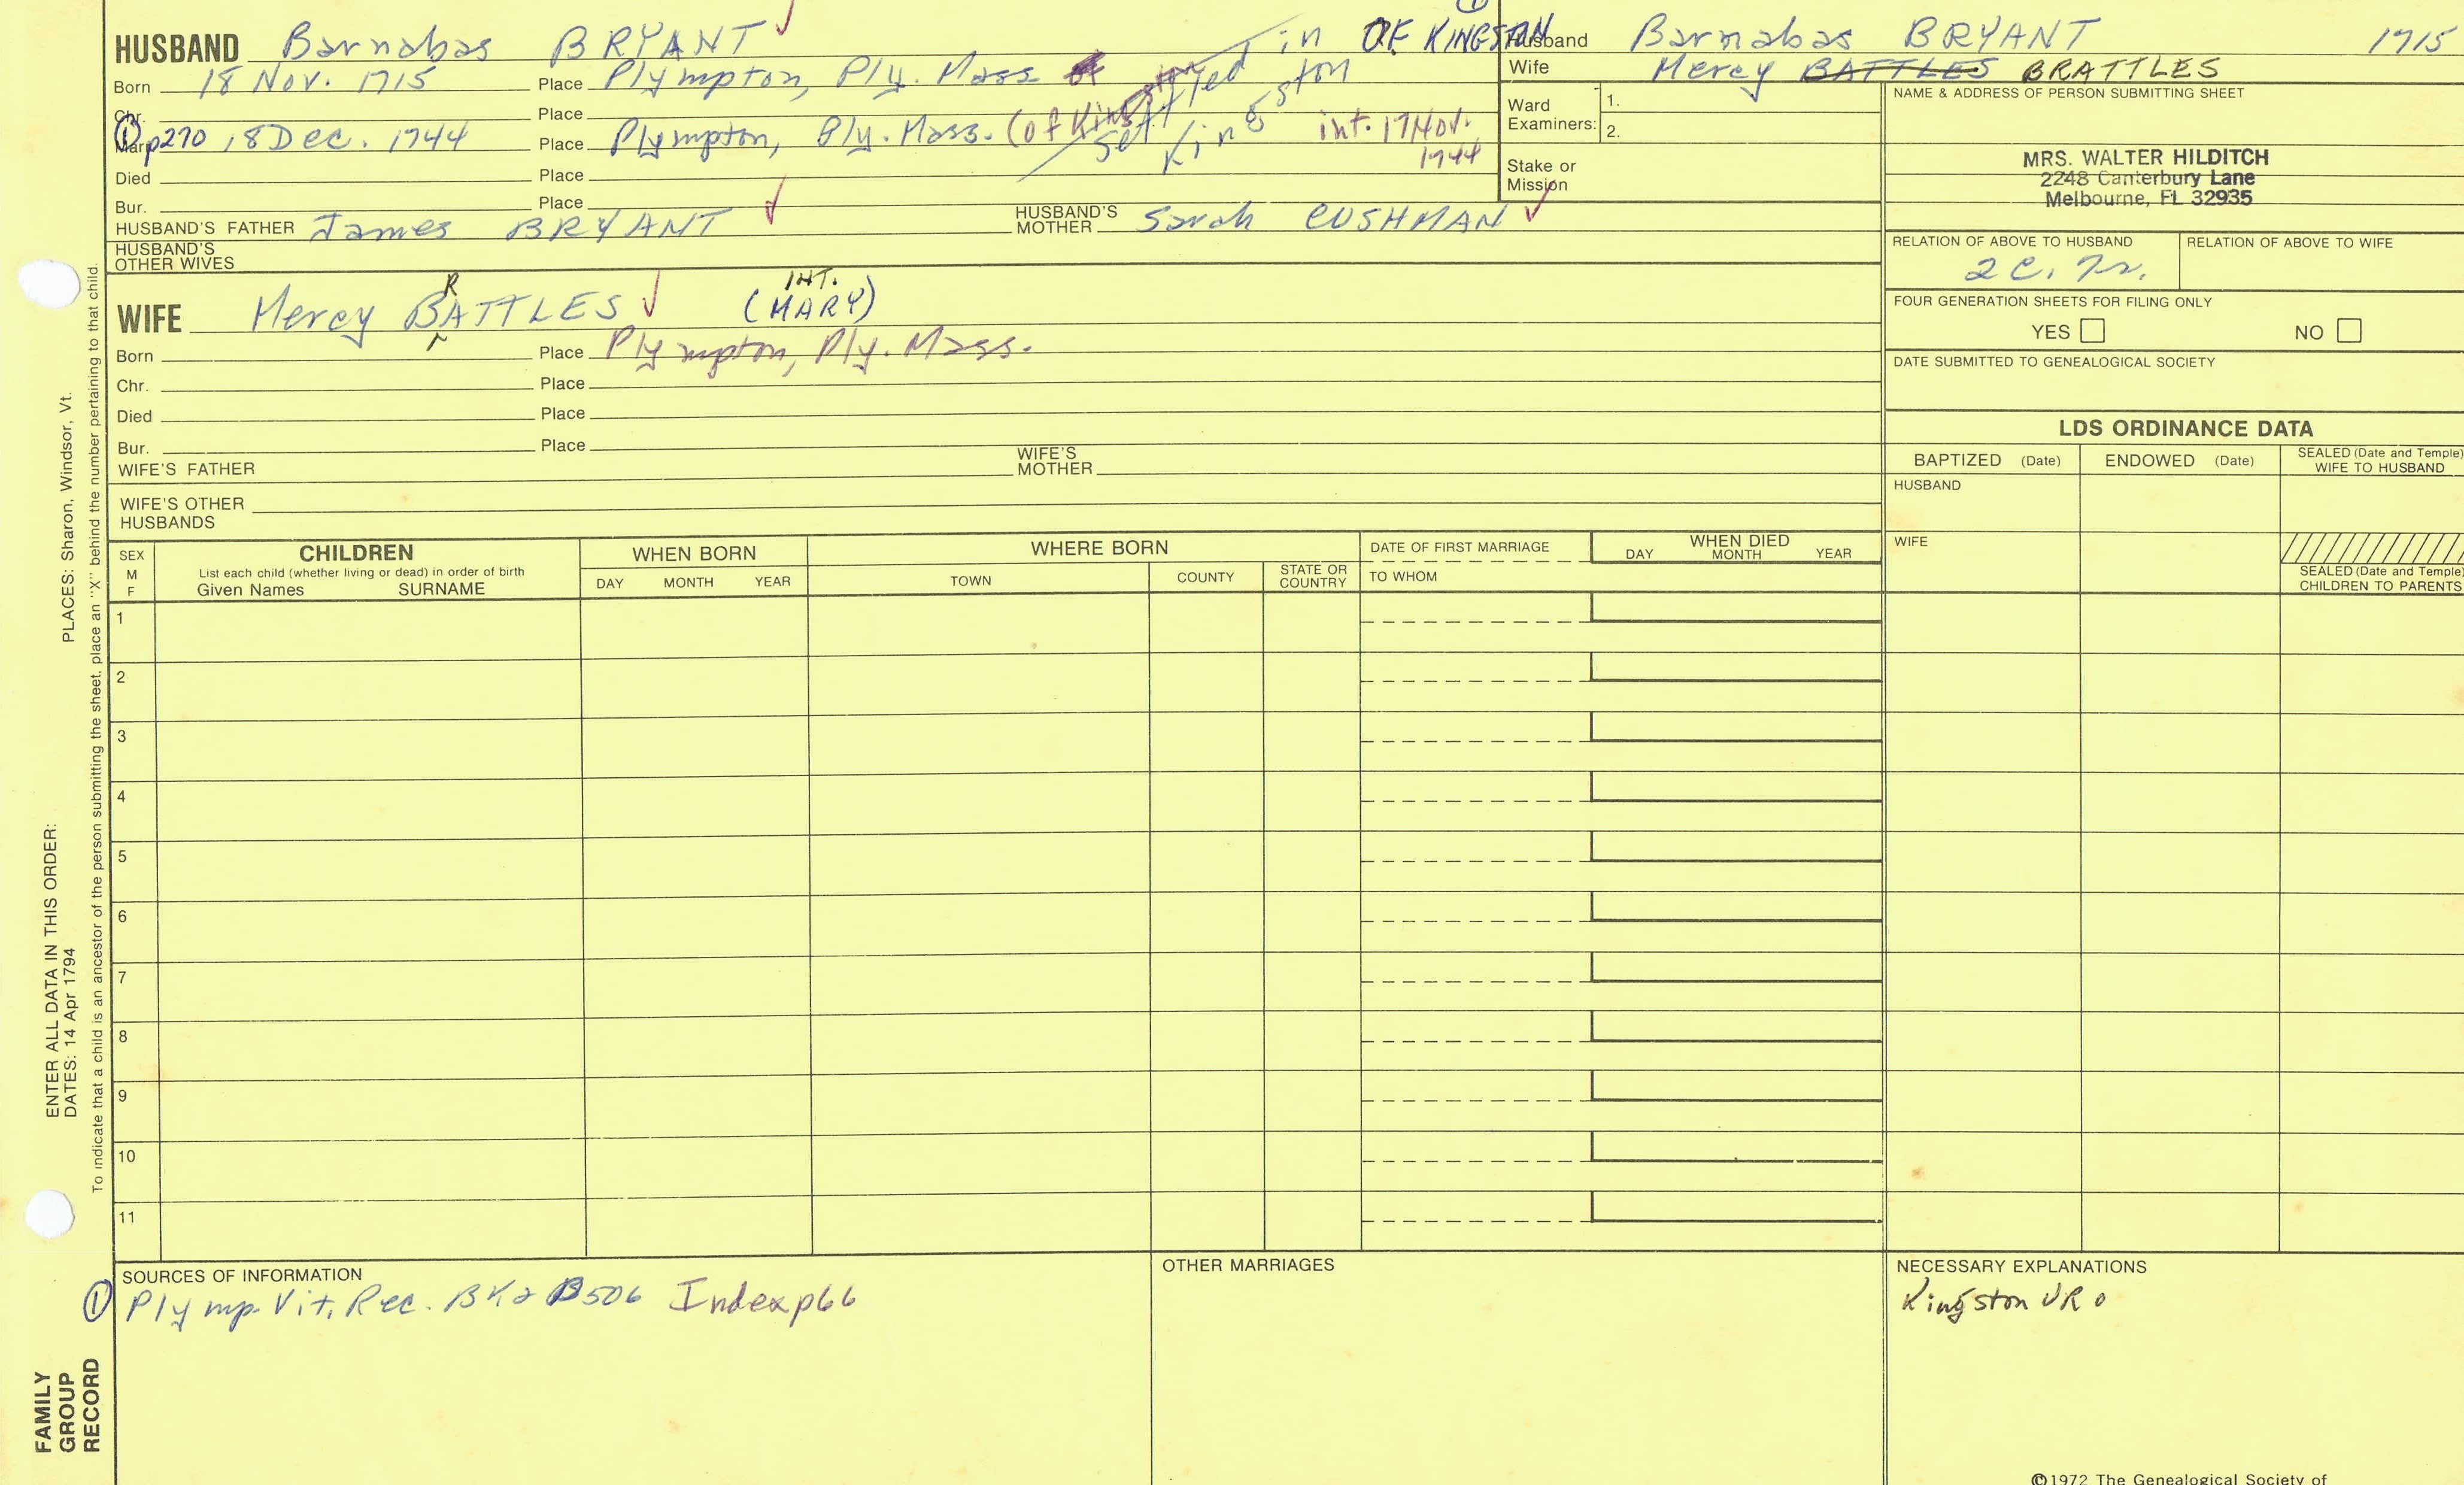 HUSBAND Barnabas BRYANT
Born 18 Nov. 1715 Place Plympton, Ply. Mass in OF KINGSTON
Chr. Place settled in Kingston
Marr. ① p270 18 Dec. 1744 Place Plympton, Ply. Mass. (of Kings int. 17 Nov. 1744
Died Place
Bur. Place
HUSBAND'S FATHER James BRYANT HUSBAND'S MOTHER Sarah CUSHMAN
HUSBAND'S OTHER WIVES
WIFE Mercy BRATTLES INT. (MARY)
Born Place Plympton, Ply. Mass.
Chr. Place
Died Place
Bur. Place
WIFE'S FATHER WIFE'S MOTHER
WIFE'S OTHER HUSBANDS
Husband Barnabas BRYANT 1715
Wife Mercy BATTLES BRATTLES
Ward Examiners: 1.
2.
Stake or Mission
NAME & ADDRESS OF PERSON SUBMITTING SHEET
MRS. WALTER HILDITCH
2248 Canterbury Lane
Melbourne, FL 32935
RELATION OF ABOVE TO HUSBAND RELATION OF ABOVE TO WIFE
2 C. 7r.
FOUR GENERATION SHEETS FOR FILING ONLY
YES NO
DATE SUBMITTED TO GENEALOGICAL SOCIETY
LDS ORDINANCE DATA
BAPTIZED (Date) ENDOWED (Date) SEALED (Date and Temple) WIFE TO HUSBAND
HUSBAND
WIFE
SEALED (Date and Temple) CHILDREN TO PARENTS
SEX M F
CHILDREN
List each child (whether living or dead) in order of birth
Given Names SURNAME
WHEN BORN
DAY MONTH YEAR
WHERE BORN
TOWN COUNTY STATE OR COUNTRY
DATE OF FIRST MARRIAGE
TO WHOM
WHEN DIED
DAY MONTH YEAR
1
2
3
4
5
6
7
8
9
10
11
SOURCES OF INFORMATION
① Plymp. Vit. Rec. BK2 B506 Index p66
OTHER MARRIAGES
NECESSARY EXPLANATIONS
Kingston VR o
©1972 The Genealogical Society of
PLACES: Sharon, Windsor, Vt.
ENTER ALL DATA IN THIS ORDER:
DATES: 14 Apr 1794
To indicate that a child is an ancestor of the person submitting the sheet, place an "X" behind the number pertaining to that child.
FAMILY
GROUP
RECORD